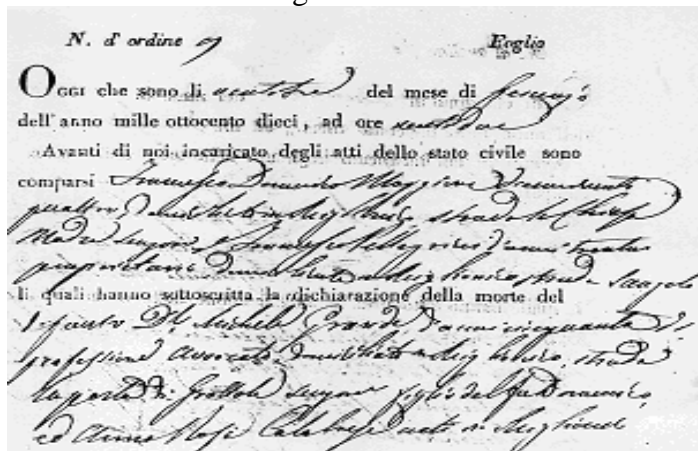 N. d'ordine 9 Foglio
Oggi che sono li ventitre del mese di
dell'anno mille ottocento dieci, ad ore ventidue
Avanti di noi incaricato degli atti dello stato civile sono
comparsi Francesco Domenico Maggiore d'anni trenta
quattro, domiciliato in Miglionico strada la Chiesa
Madre
proprietario domiciliato in Miglionico strada
li quali hanno sottoscritta la dichiarazione della morte del
Defunto D. Michele Grande d'anni cinquanta di
professione avvocato domiciliato in Miglionico, strada
la porta di Grottole figlio del fu Domenico,
ed Anna Rosa Calabrese nato in Miglionico